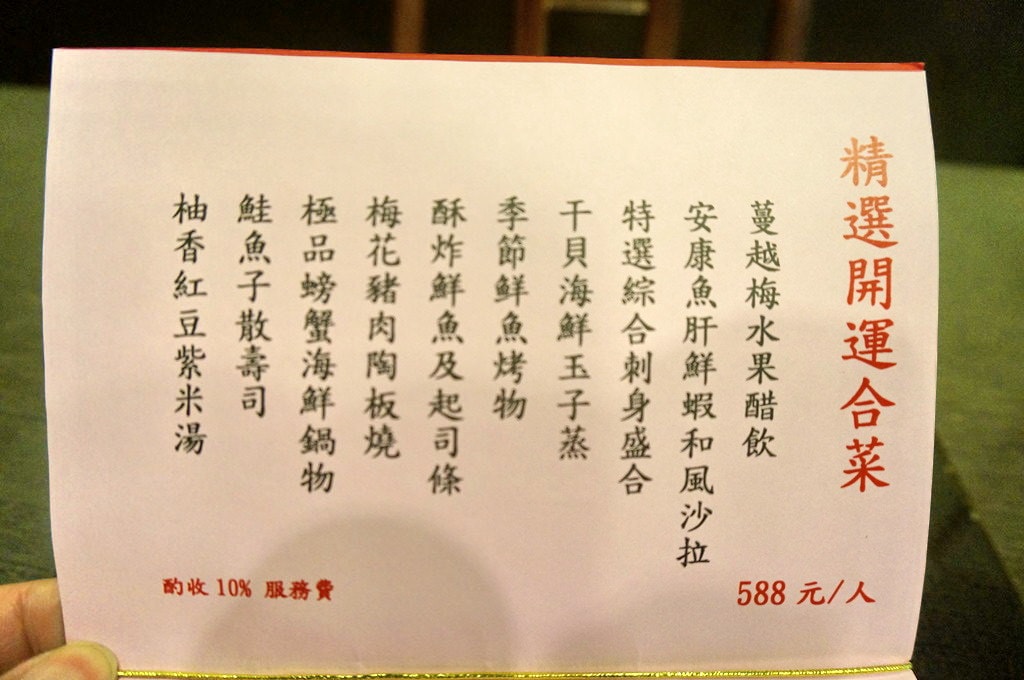 精選開運合菜
蔓越梅水果醋飲
安康魚肝鮮蝦和風沙拉
特選綜合刺身盛合
干貝海鮮玉子蒸
季節鮮魚烤物
酥炸鮮魚及起司條
梅花豬肉陶板燒
極品螃蟹海鮮鍋物
鮭魚子散壽司
柚香紅豆紫米湯
588 元/人
酌收 10% 服務費